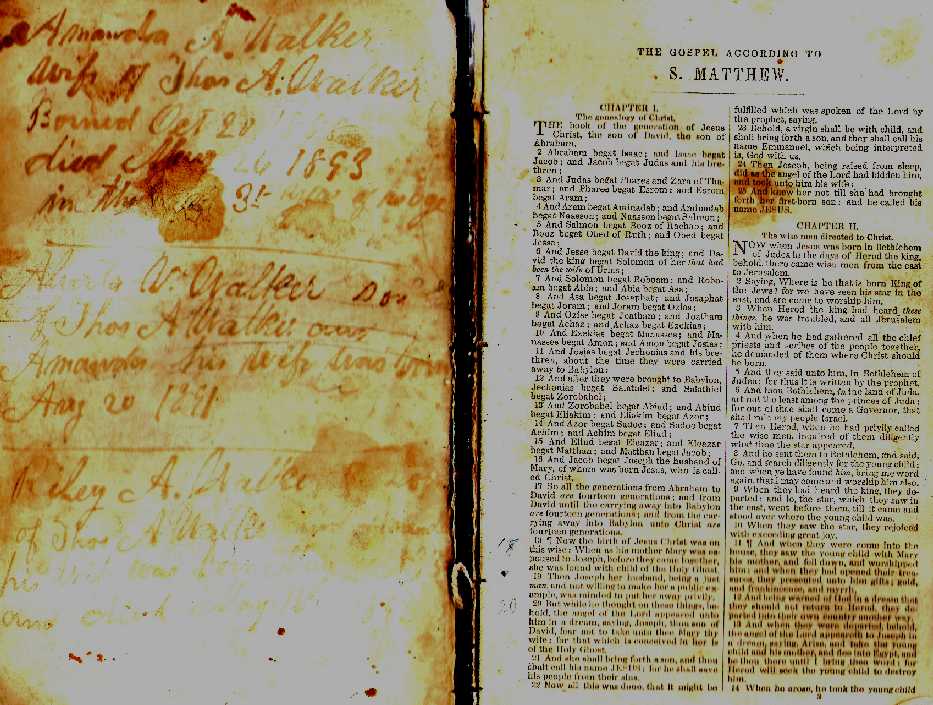 Amanda A. Walker
Wife of Thos A. Walker
Borned Oct 20
died 1893
in the
W. Walker son
of Thos A Walker
Aug 20
A. Walke
of Thos A Walke
died
THE GOSPEL ACCORDING TO
S. MATTHEW.
CHAPTER I.
The genealogy of Christ.
THE book of the generation of Jesus
Christ, the son of David, the son of
Abraham.
2 Abraham begat Isaac; and Isaac begat
Jacob; and Jacob begat Judas and his bre-
thren;
3 And Judas begat Phares and Zara of Tha-
mar; and Phares begat Esrom; and Esrom
begat Aram;
4 And Aram begat Aminadab; and Aminadab
begat Naasson; and Naasson begat Salmon;
5 And Salmon begat Booz of Rachab; and
Booz begat Obed of Ruth; and Obed begat
Jesse;
6 And Jesse begat David the king; and Da-
vid the king begat Solomon of her that had
been the wife of Urias;
7 And Solomon begat Roboam; and Robo-
am begat Abia; and Abia begat Asa;
8 And Asa begat Josaphat; and Josaphat
begat Joram; and Joram begat Ozias;
9 And Ozias begat Joatham; and Joatham
begat Achaz; and Achaz begat Ezekias;
10 And Ezekias begat Manasses; and Ma-
nasses begat Amon; and Amon begat Josias;
11 And Josias begat Jechonias and his bre-
thren, about the time they were carried
away to Babylon:
12 And after they were brought to Babylon,
Jechonias begat Salathiel; and Salathiel
begat Zorobabel;
13 And Zorobabel begat Abiud; and Abiud
begat Eliakim; and Eliakim begat Azor;
14 And Azor begat Sadoc; and Sadoc begat
Achim; and Achim begat Eliud;
15 And Eliud begat Eleazar; and Eleazar
begat Matthan; and Matthan begat Jacob;
16 And Jacob begat Joseph the husband of
Mary, of whom was born Jesus, who is call-
ed Christ.
17 So all the generations from Abraham to
David are fourteen generations; and from
David until the carrying away into Babylon
are fourteen generations; and from the car-
rying away into Babylon unto Christ are
fourteen generations.
18 ¶ Now the birth of Jesus Christ was on
this wise: When as his mother Mary was es-
poused to Joseph, before they came together,
she was found with child of the Holy Ghost.
19 Then Joseph her husband, being a just
man, and not willing to make her a public ex-
ample, was minded to put her away privily.
20 But while he thought on these things, be-
hold, the angel of the Lord appeared unto
him in a dream, saying, Joseph, thou son of
David, fear not to take unto thee Mary thy
wife: for that which is conceived in her is
of the Holy Ghost.
21 And she shall bring forth a son, and thou
shalt call his name JESUS: for he shall save
his people from their sins.
22 Now all this was done, that it might be
fulfilled which was spoken of the Lord by
the prophet, saying,
23 Behold, a virgin shall be with child, and
shall bring forth a son, and they shall call his
name Emmanuel, which being interpreted
is, God with us.
24 Then Joseph, being raised from sleep,
did as the angel of the Lord had bidden him,
and took unto him his wife:
25 And knew her not till she had brought
forth her first-born son: and he called his
name JESUS.
CHAPTER II.
The wise men directed to Christ.
NOW when Jesus was born in Bethlehem
of Judea in the days of Herod the king,
behold, there came wise men from the east
to Jerusalem,
2 Saying, Where is he that is born King of
the Jews? for we have seen his star in the
east, and are come to worship him.
3 When Herod the king had heard these
things, he was troubled, and all Jerusalem
with him.
4 And when he had gathered all the chief
priests and scribes of the people together,
he demanded of them where Christ should
be born.
5 And they said unto him, In Bethlehem of
Judea: for thus it is written by the prophet,
6 And thou Bethlehem, in the land of Juda,
art not the least among the princes of Juda:
for out of thee shall come a Governor, that
shall rule my people Israel.
7 Then Herod, when he had privily called
the wise men, inquired of them diligently
what time the star appeared.
8 And he sent them to Bethlehem, and said,
Go, and search diligently for the young child;
and when ye have found him, bring me word
again, that I may come and worship him also.
9 When they had heard the king, they de-
parted; and lo, the star, which they saw in
the east, went before them, till it came and
stood over where the young child was.
10 When they saw the star, they rejoiced
with exceeding great joy.
11 ¶ And when they were come into the
house, they saw the young child with Mary
his mother, and fell down, and worshipped
him: and when they had opened their trea-
sures, they presented unto him gifts; gold,
and frankincense, and myrrh.
12 And being warned of God in a dream that
they should not return to Herod, they de-
parted into their own country another way.
13 And when they were departed, behold,
the angel of the Lord appeareth to Joseph in
a dream, saying, Arise, and take the young
child and his mother, and flee into Egypt, and
be thou there until I bring thee word: for
Herod will seek the young child to destroy
him.
14 When he arose, he took the young child